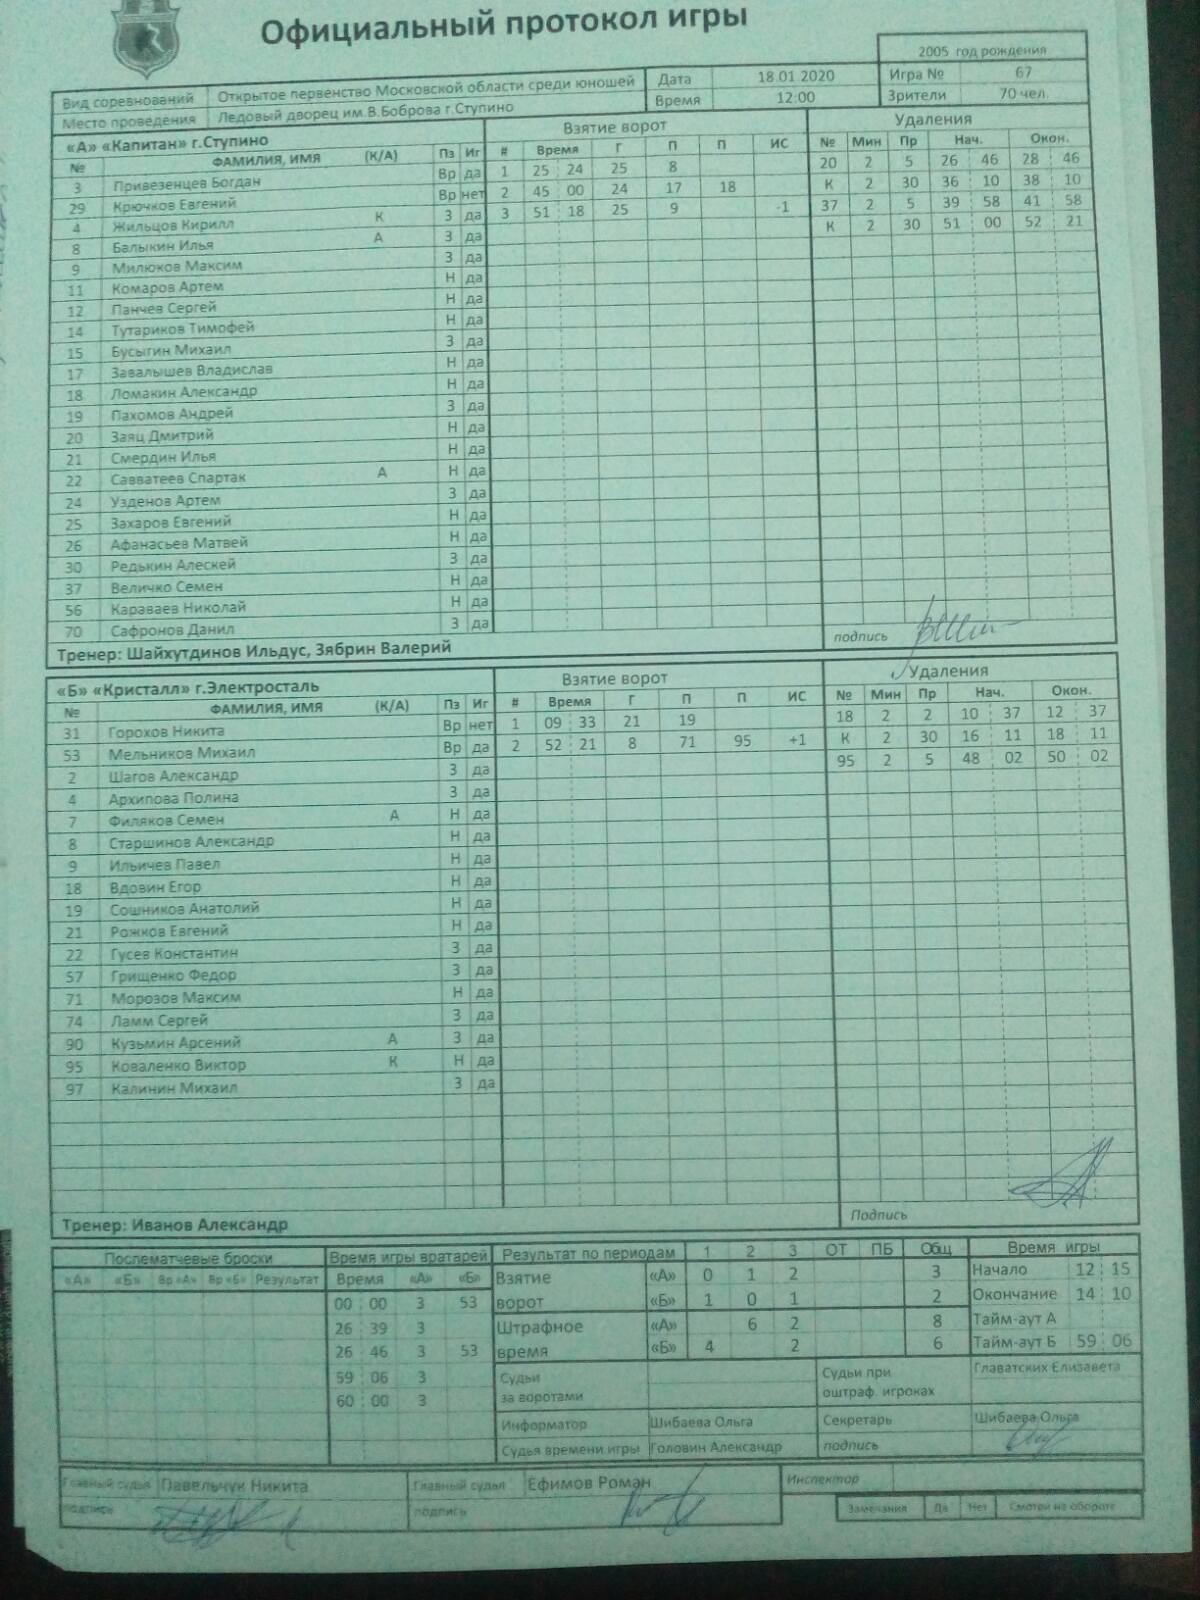 Официальный протокол игры
2005 год рождения
Вид соревнований Открытое первенство Московской области среди юношей Дата 18.01 2020 Игра № 67
Место проведения Ледовый дворец им.В.Боброва г.Ступино Время 12:00 Зрители 70 чел.
«А» «Капитан» г.Ступино Взятие ворот Удаления
№ ФАМИЛИЯ, ИМЯ (К/А) Пз Иг # Время Г П П ИС № Мин Пр Нач. Окон.
3 Привезенцев Богдан Вр да 1 25 24 25 8 20 2 5 26 46 28 46
29 Крючков Евгений Вр нет 2 45 00 24 17 18 К 2 30 36 10 38 10
4 Жильцов Кирилл К З да 3 51 18 25 9 -1 37 2 5 39 58 41 58
8 Балыкин Илья А З да К 2 30 51 00 52 21
9 Милюков Максим З да
11 Комаров Артем Н да
12 Панчев Сергей Н да
14 Тутариков Тимофей Н да
15 Бусыгин Михаил З да
17 Завалышев Владислав Н да
18 Ломакин Александр Н да
19 Пахомов Андрей З да
20 Заяц Дмитрий Н да
21 Смердин Илья Н да
22 Савватеев Спартак А Н да
24 Узденов Артем З да
25 Захаров Евгений Н да
26 Афанасьев Матвей Н да
30 Редькин Алескей З да
37 Величко Семен Н да
56 Караваев Николай Н да
70 Сафронов Данил З да
Тренер: Шайхутдинов Ильдус, Зябрин Валерий подпись
«Б» «Кристалл» г.Электросталь Взятие ворот Удаления
№ ФАМИЛИЯ, ИМЯ (К/А) Пз Иг # Время Г П П ИС № Мин Пр Нач. Окон.
31 Горохов Никита Вр нет 1 09 33 21 19 18 2 2 10 37 12 37
53 Мельников Михаил Вр да 2 52 21 8 71 95 +1 К 2 30 16 11 18 11
2 Шагов Александр З да 95 2 5 48 02 50 02
4 Архипова Полина З да
7 Филяков Семен А Н да
8 Старшинов Александр Н да
9 Ильичев Павел Н да
18 Вдовин Егор Н да
19 Сошников Анатолий Н да
21 Рожков Евгений Н да
22 Гусев Константин З да
57 Грищенко Федор З да
71 Морозов Максим Н да
74 Ламм Сергей З да
90 Кузьмин Арсений А З да
95 Коваленко Виктор К Н да
97 Калинин Михаил З да
Тренер: Иванов Александр Подпись
Послематчевые броски Время игры вратарей Результат по периодам 1 2 3 ОТ ПБ Общ Время игры
«А» «Б» Вр «А» Вр «Б» Результат Время «А» «Б» Взятие «А» 0 1 2 3 Начало 12 15
00 00 3 53 ворот «Б» 1 0 1 2 Окончание 14 10
26 39 3 Штрафное «А» 6 2 8 Тайм-аут А
26 46 3 53 время «Б» 4 2 6 Тайм-аут Б 59 06
59 06 3 Судьи за воротами Судьи при оштраф. игроках Главатских Елизавета
60 00 3 Информатор Шибаева Ольга Секретарь Шибаева Ольга
Судья времени игры Головин Александр подпись
Главный судья Павельчук Никита Главный судья Ефимов Роман Инспектор
подпись подпись Замечания Да Нет Смотри на обороте